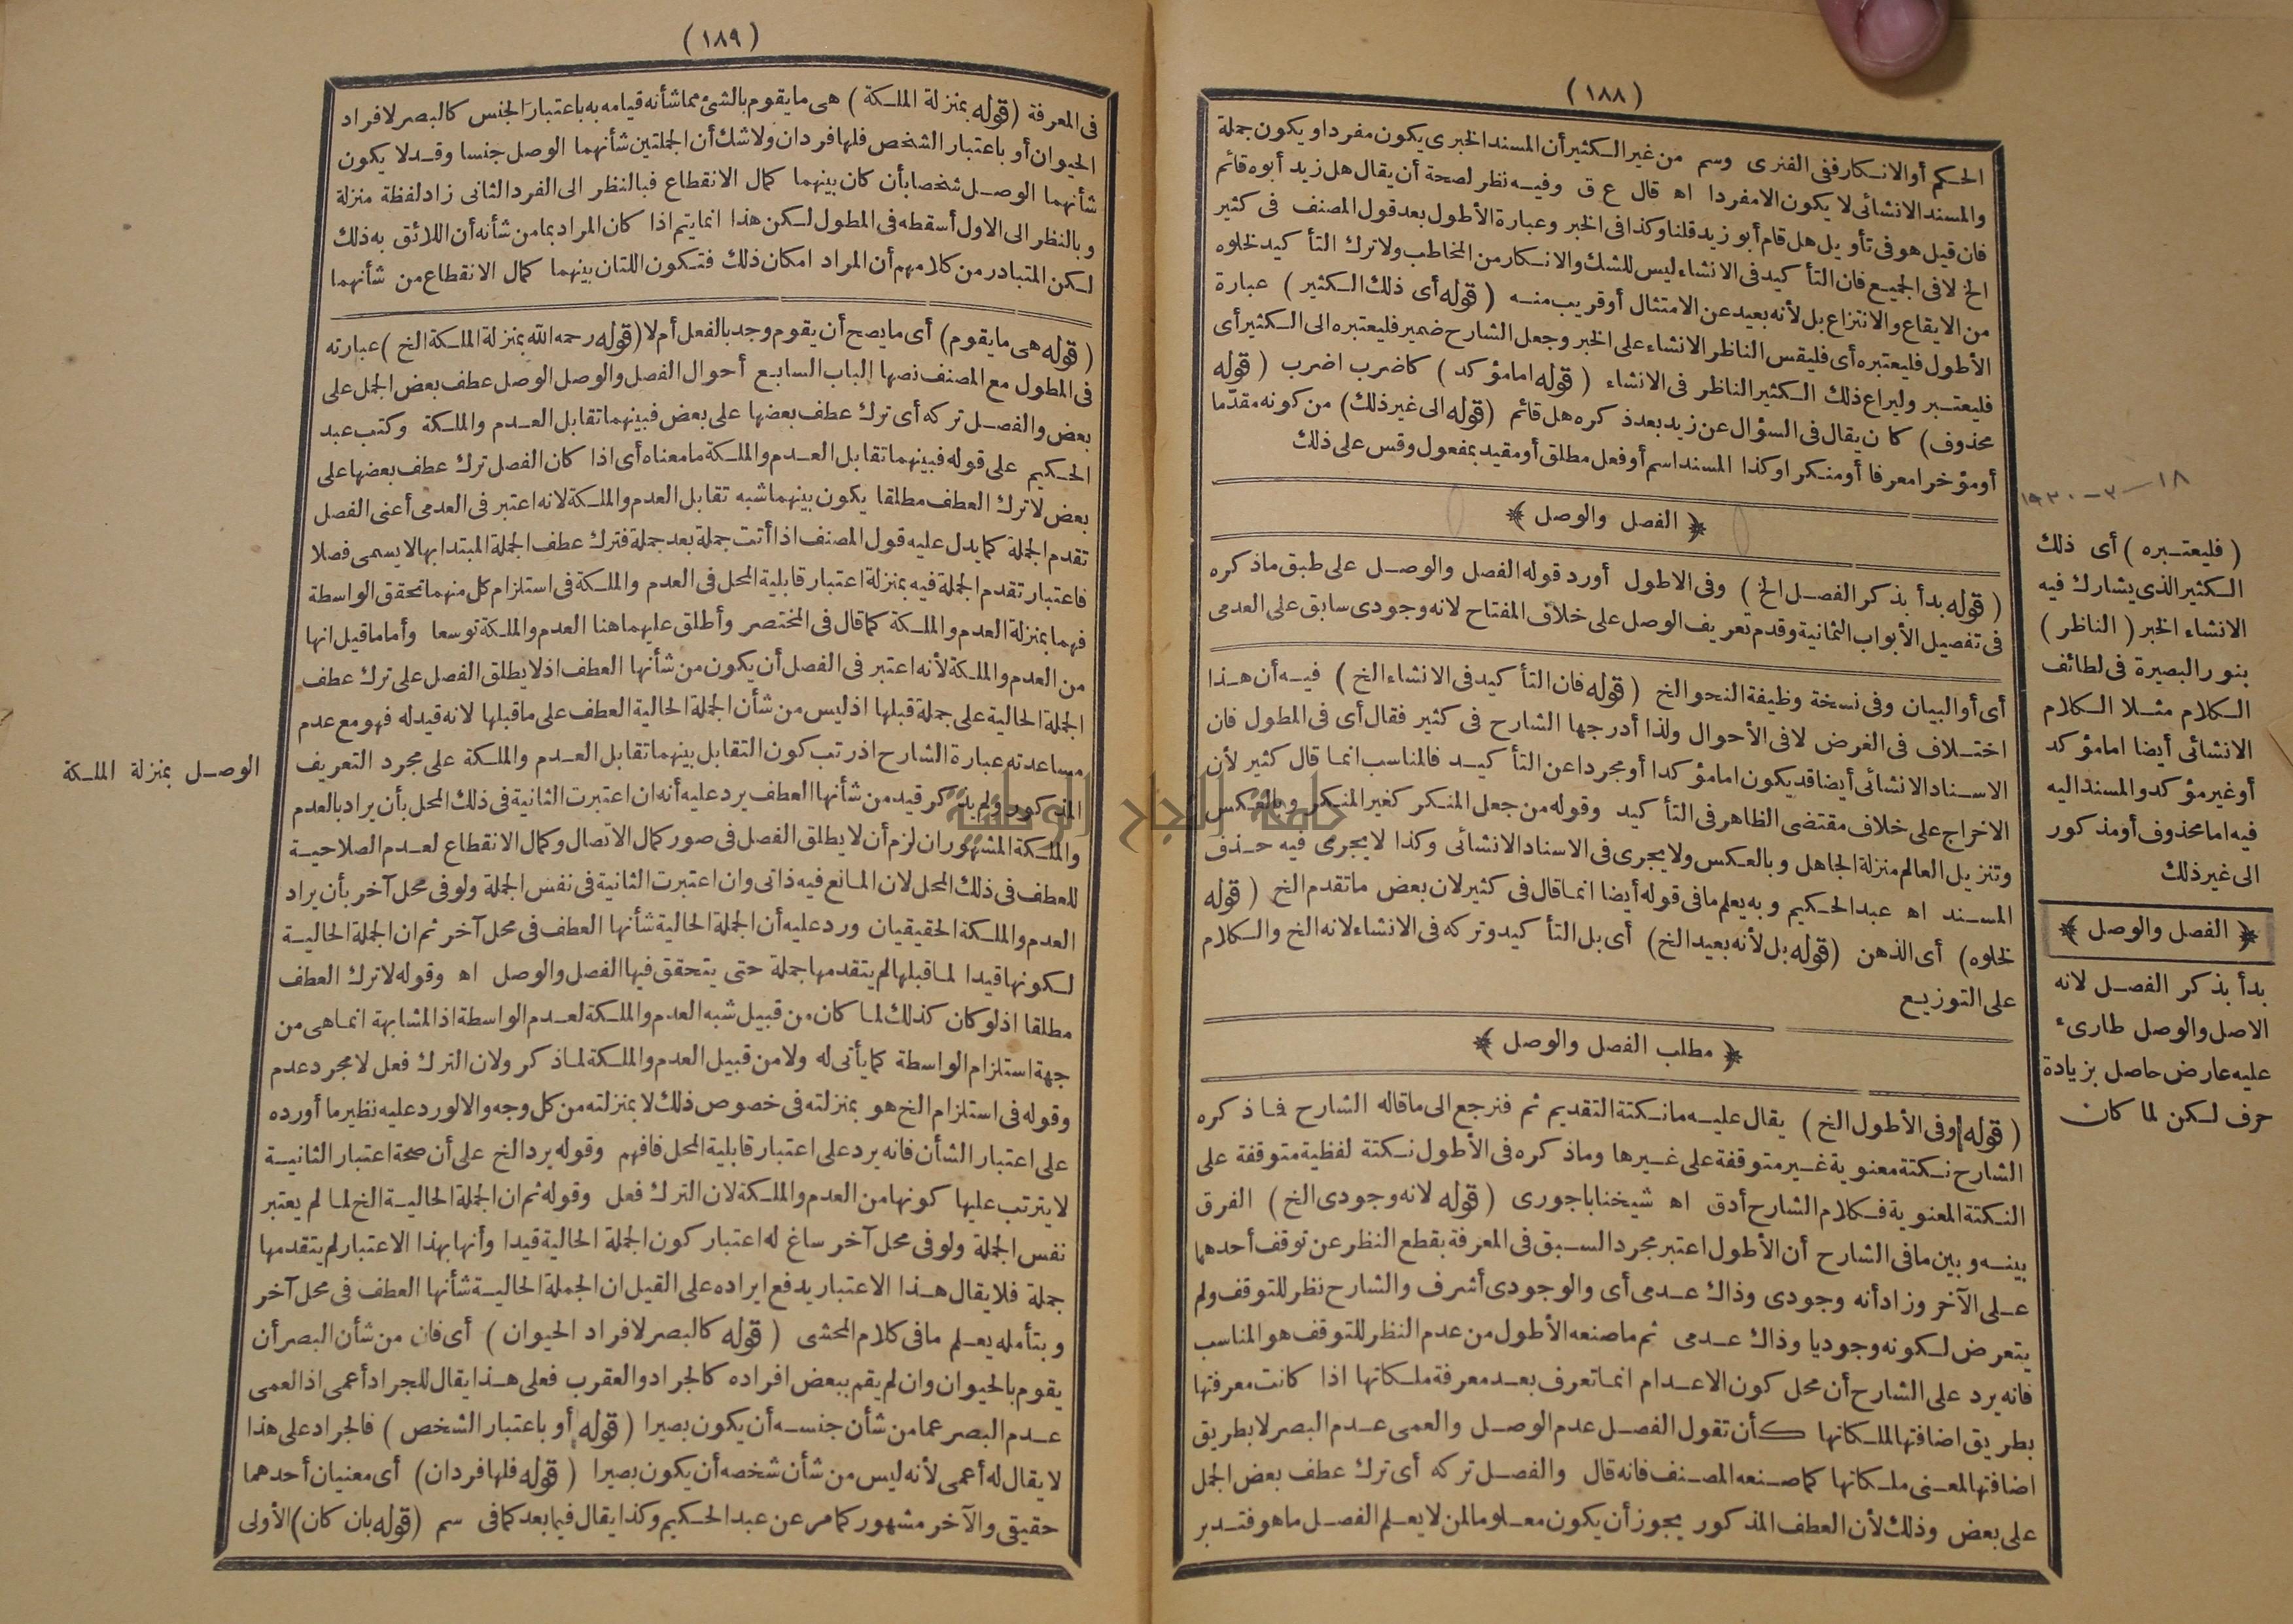 (١٨٨)
الحكم أو الانكار ففي الفنرى وسم من غير الكثير أن المسند الخبرى يكون مفردا ويكون جملة
والمسند الانشائى لا يكون الا مفردا اه قال ع ق وفيه نظر لصحة أن يقال هل زيد أبوه قائم
فان قيل هو فى تأويل هل قام أبو زيد قلنا وكذا فى الخبر وعبارة الأطول بعد قول المصنف فى كثير
الخ لا فى الجميع فان التأكيد فى الانشاء ليس للشك والانكار من المخاطب ولا ترك التأكيد خلوه
من الايقاع والانتزاع بل لأنه بعيد عن الامتثال أو قريب منه (قوله أى ذلك الكثير) عبارة
الأطول فليعتبره أى فليقس الناظر الانشاء على الخبر وجعل الشارح ضمير فليعتبره الى الكثير أى
فليعتبر وليراع ذلك الكثير الناظر فى الانشاء (قوله اما مؤكد) كاضرب اضرب (قوله
محذوف) كان يقال فى السؤال عن زيد بعد ذكره هل قائم (قوله الى غير ذلك) من كونه مقدّما
أو مؤخرا معرفا أو منكرا وكذا المسند اسم أو فعل مطلق أو مقيد بمفعول وقس على ذلك
﴿ الفصل والوصل ﴾
(قوله بدأ بذكر الفصل الخ) وفى الاطول أورد قوله الفصل والوصل على طبق ما ذكره
فى تفصيل الأبواب الثمانية وقدم تعريف الوصل على خلاف المفتاح لانه وجودى سابق على العدمى
أى أو البيان وفى نسخة وظيفة النحو الخ (قوله فان التأكيد فى الانشاء الخ) فيه أن هذا
اختلاف فى الغرض لا فى الأحوال ولذا أدرجها الشارح فى كثير فقال أى فى المطول فان
الاسناد الانشائى أيضا قد يكون اما مؤكدا أو مجردا عن التأكيد فالمناسب انما قال كثير لأن
الاخراج على خلاف مقتضى الظاهر فى التأكيد وقوله من جعل المنكر كغير المنكر وبالعكس
وتنزيل العالم منزلة الجاهل وبالعكس ولا يجرى فى الاسناد الانشائى وكذا لا يجرى فيه حذف
المسند اه عبد الحكيم وبه يعلم ما فى قوله أيضا انما قال فى كثير لان بعض ما تقدم الخ (قوله
لخلوه) أى الذهن (قوله بل لأنه بعيد الخ) أى بل التأكيد وتركه فى الانشاء لانه الخ والكلام
على التوزيع
﴿ مطلب الفصل والوصل ﴾
(قوله وفى الأطول الخ) يقال عليه ما نكتة التقديم ثم فنرجع الى ما قاله الشارح فاذكره
الشارح نكتة معنوية غير متوقفة على غيرها وما ذكره فى الأطول نكتة لفظية متوقفة على
النكتة المعنوية فكلام الشارح أدق اه شيخنا باجورى (قوله لانه وجودى الخ) الفرق
بينه وبين ما فى الشارح أن الأطول اعتبر مجرد السبق فى المعرفة بقطع النظر عن توقف أحدهما
على الآخر وزاد أنه وجودى وذاك عدمى أى والوجودى أشرف والشارح نظر للتوقف ولم
يتعرض لكونه وجوديا وذاك عدمى ثم ما صنعه الأطول من عدم النظر للتوقف هو المناسب
فانه يرد على الشارح أن محل كون الاعدام انما تعرف بعد معرفة ملكاتها اذا كانت معرفتها
بطريق اضافتها الملكاتها كأن تقول الفصل عدم الوصل والعمى عدم البصر لا بطريق
اضافتها لمعنى ملكاتها كما صنعه المصنف فانه قال والفصل تركه أى ترك عطف بعض الجمل
على بعض وذلك لأن العطف المذكور يجوز أن يكون معلوما لمن لا يعلم الفصل ما هو فتدبر
١٨-٣-١٩٣٠
(فليعتبره) أى ذلك
الكثير الذى يشارك فيه
الانشاء الخبر (الناظر)
بنور البصيرة فى لطائف
الكلام مثلا الكلام
الانشائى أيضا اما مؤكد
أو غير مؤكد والمسند اليه
فيه اما محذوف أو مذكور
الى غير ذلك
﴿ الفصل والوصل ﴾
بدأ بذكر الفصل لانه
الاصل والوصل طارىء
عليه عارض حاصل بزيادة
حرف لكن لما كان
(١٨٩)
فى المعرفة (قوله بمنزلة الملكة) هى ما يقوم بالشئ مما شأنه قيامه به باعتبار الجنس كالبصر لافراد
الحيوان أو باعتبار الشخص فلها فردان ولا شك أن الجملتين شأنهما الوصل جنسا وقد لا يكون
شأنهما الوصل شخصا بأن كان بينهما كمال الانقطاع فبالنظر الى الفرد الثانى زاد لفظة منزلة
وبالنظر الى الاول أسقطه فى المطول لكن هذا انما يتم اذا كان المراد بما من شأنه أن اللائق به ذلك
لكن المتبادر من كلامهم أن المراد امكان ذلك فتكون اللتان بينهما كمال الانقطاع من شأنهما
(قوله هى ما يقوم) أى ما يصح أن يقوم وجد بالفعل أم لا (قوله رحمه الله بمنزلة الملكة الخ) عبارته
فى المطول مع المصنف نصها الباب السابع أحوال الفصل والوصل الوصل عطف بعض الجمل على
بعض والفصل تركه أى ترك عطف بعضها على بعض فبينهما تقابل العدم والملكة وكتب عبد
الحكيم على قوله فبينهما تقابل العدم والملكة ما معناه أى اذا كان الفصل ترك عطف بعضها على
بعض لا ترك العطف مطلقا يكون بينهما شبه تقابل العدم والملكة لانه اعتبر فى العدمى أعنى الفصل
تقدم الجملة كما يدل عليه قول المصنف اذا أتت جملة بعد جملة فترك عطف الجملة المبتدا بها لا يسمى فصلا
فاعتبار تقدم الجملة فيه بمنزلة اعتبار قابلية المحل فى العدم والملكة فى استلزام كل منهما تحقق الواسطة
فهما بمنزلة العدم والملكة كما قال فى المختصر وأطلق عليهما هنا العدم والملكة توسعا وأما ما قيل انها
من العدم والملكة لأنه اعتبر فى الفصل أن يكون من شأنها العطف اذ لا يطلق الفصل على ترك عطف
الجملة الحالية على جملة قبلها اذ ليس من شأن الجملة الحالية العطف على ما قبلها لانه قيد له فهو مع عدم
مساعدته عبارة الشارح اذ رتب كون التقابل بينهما تقابل العدم والملكة على مجرد التعريف
المذكور ولم يذكر قيد من شأنها العطف يرد عليه أنه ان اعتبرت الثانية فى ذلك المحل بأن يراد بالعدم
والملكة المشهوران لزم أن لا يطلق الفصل فى صور كمال الاتصال وكمال الانقطاع لعدم الصلاحية
للعطف فى ذلك المحل لان المانع فيه ذاتى وان اعتبرت الثانية فى نفس الجملة ولو فى محل آخر بأن يراد
العدم والملكة الحقيقيان ورد عليه أن الجملة الحالية شأنها العطف فى محل آخر ثم ان الجملة الحالية
لكونها قيدا لما قبلها لم يتقدمها جملة حتى يتحقق فيها الفصل والوصل اه وقوله لا ترك العطف
مطلقا اذ لو كان كذلك لما كان من قبيل شبه العدم والملكة لعدم الواسطة اذ المشابهة انما هى من
جهة استلزام الواسطة كما يأتى له ولا من قبيل العدم والملكة لما ذكر ولان الترك فعل لا مجرد عدم
وقوله فى استلزام الخ هو بمنزلته فى خصوص ذلك لا بمنزلته من كل وجه والا لورد عليه نظير ما أورده
على اعتبار الشأن فانه يرد على اعتبار قابلية المحل فافهم وقوله يرد الخ على أن صحة اعتبار الثانية
لا يترتب عليها كونها من العدم والملكة لان الترك فعل وقوله ثم ان الجملة الحالية الخ لما لم يعتبر
نفس الجملة ولو فى محل آخر ساغ له اعتبار كون الجملة الحالية قيدا وأنها بهذا الاعتبار لم يتقدمها
جملة فلا يقال هذا الاعتبار يدفع ايراده على القيل ان الجملة الحالية شأنها العطف فى محل آخر
وبتأمله يعلم ما فى كلام المحشى (قوله كالبصر لافراد الحيوان) أى فان من شأن البصر أن
يقوم بالحيوان وان لم يقم ببعض افراده كالجراد والعقرب فعلى هذا يقال للجراد أعمى اذ العمى
عدم البصر عما من شأن جنسه أن يكون بصيرا (قوله أو باعتبار الشخص) فالجراد على هذا
لا يقال له أعمى لأنه ليس من شأن شخصه أن يكون بصيرا (قوله فلها فردان) أى معنيان أحدهما
حقيقى والآخر مشهور كما مر عن عبد الحكيم وكذا يقال فيما بعد كما فى سم (قوله بان كان) الأولى
الوصل بمنزلة الملكة
جامعة النجاح الوطنية